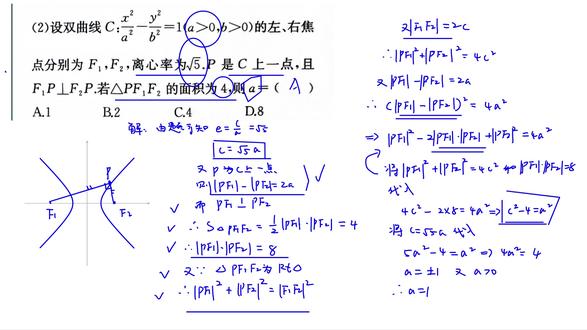 (2)设双曲线 C: x²/a² - y²/b² = 1(a>0,b>0)的左、右焦
点分别为 F₁,F₂,离心率为√5.P 是 C 上一点,且
F₁P⊥F₂P.若△PF₁F₂ 的面积为 4,则 a=( A )
A.1 B.2 C.4 D.8
解: 由题可知 e = c/a = √5
c = √5 a
又 P 为 C 上一点
则 |PF₁| - |PF₂| = 2a
而 PF₁ ⊥ PF₂
∴ S△PF₁F₂ = 1/2 |PF₁|·|PF₂| = 4
∴ |PF₁|·|PF₂| = 8
又∵ △PF₁F₂为Rt△
∴ |PF₁|² + |PF₂|² = |F₁F₂|²
P
F₁ F₂
又|F₁F₂| = 2c
∴ |PF₁|² + |PF₂|² = 4c²
又 |PF₁| - |PF₂| = 2a
∴ (|PF₁| - |PF₂|)² = 4a²
⇒ |PF₁|² - 2|PF₁|·|PF₂| + |PF₂|² = 4a²
将 |PF₁|² + |PF₂|² = 4c² 和 |PF₁|·|PF₂| = 8
代入
4c² - 2×8 = 4a² ⇒ c² - 4 = a²
将 c = √5 a 代入
5a² - 4 = a² ⇒ 4a² = 4
a = ±1 又 a>0
∴ a = 1